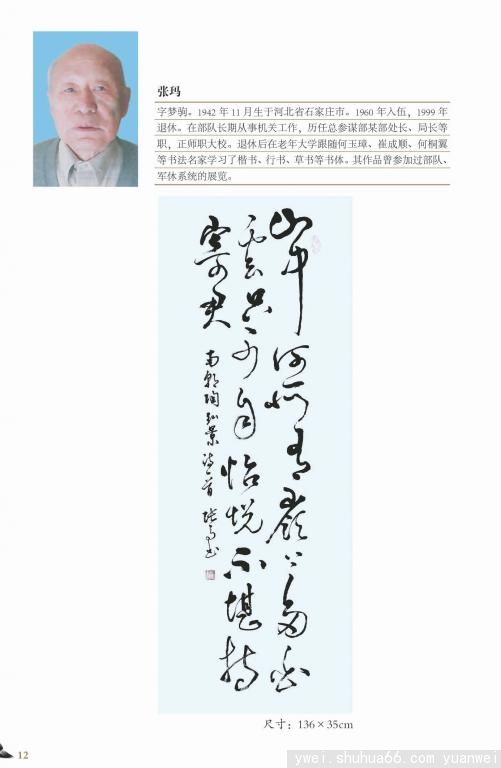 张玛
字梦驹。1942年11月生于河北省石家庄市。1960年入伍，1999年
退休。在部队长期从事机关工作，历任总参谋部某部处长、局长等
职，正师职大校。退休后在老年大学跟随何玉璋、崔成顺、何桐翼
等书法名家学习了楷书、行书、草书等书体。其作品曾参加过部队、
军休系统的展览。
山中何所有岭上多白
云只可自怡悦不堪持
寄君
南朝陶弘景诗一首 张玛书
尺寸：136×35cm
12
ywei.shuhua66.com yuanwei